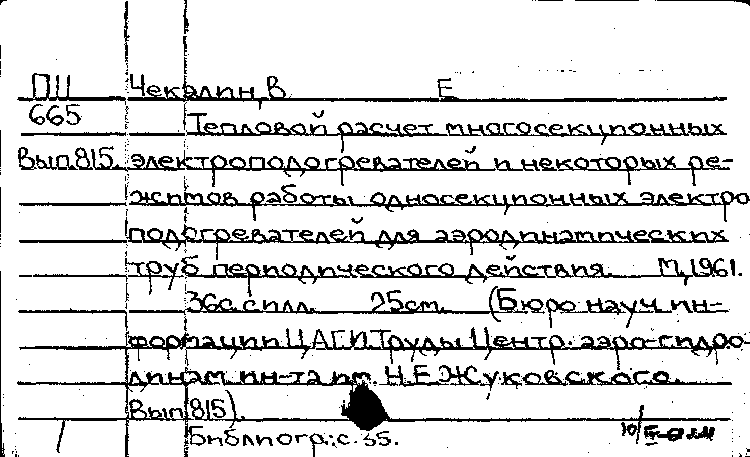 П11 Чекалин, В Е
665 Тепловой расчет многосекционных
Вып.815. электроподогревателей и некоторых ре-
жимов работы односекционных электро
подогревателей для аэродинамических
труб периодического действия. М,1961.
36с.с илл. 25см. (Бюро науч ин-
формации ЦАГИ.Труды Центр. аэро-гидро-
динам ин-та им. Н.Е Жуковского.
Вып.815).
Библиогр.:с.35.